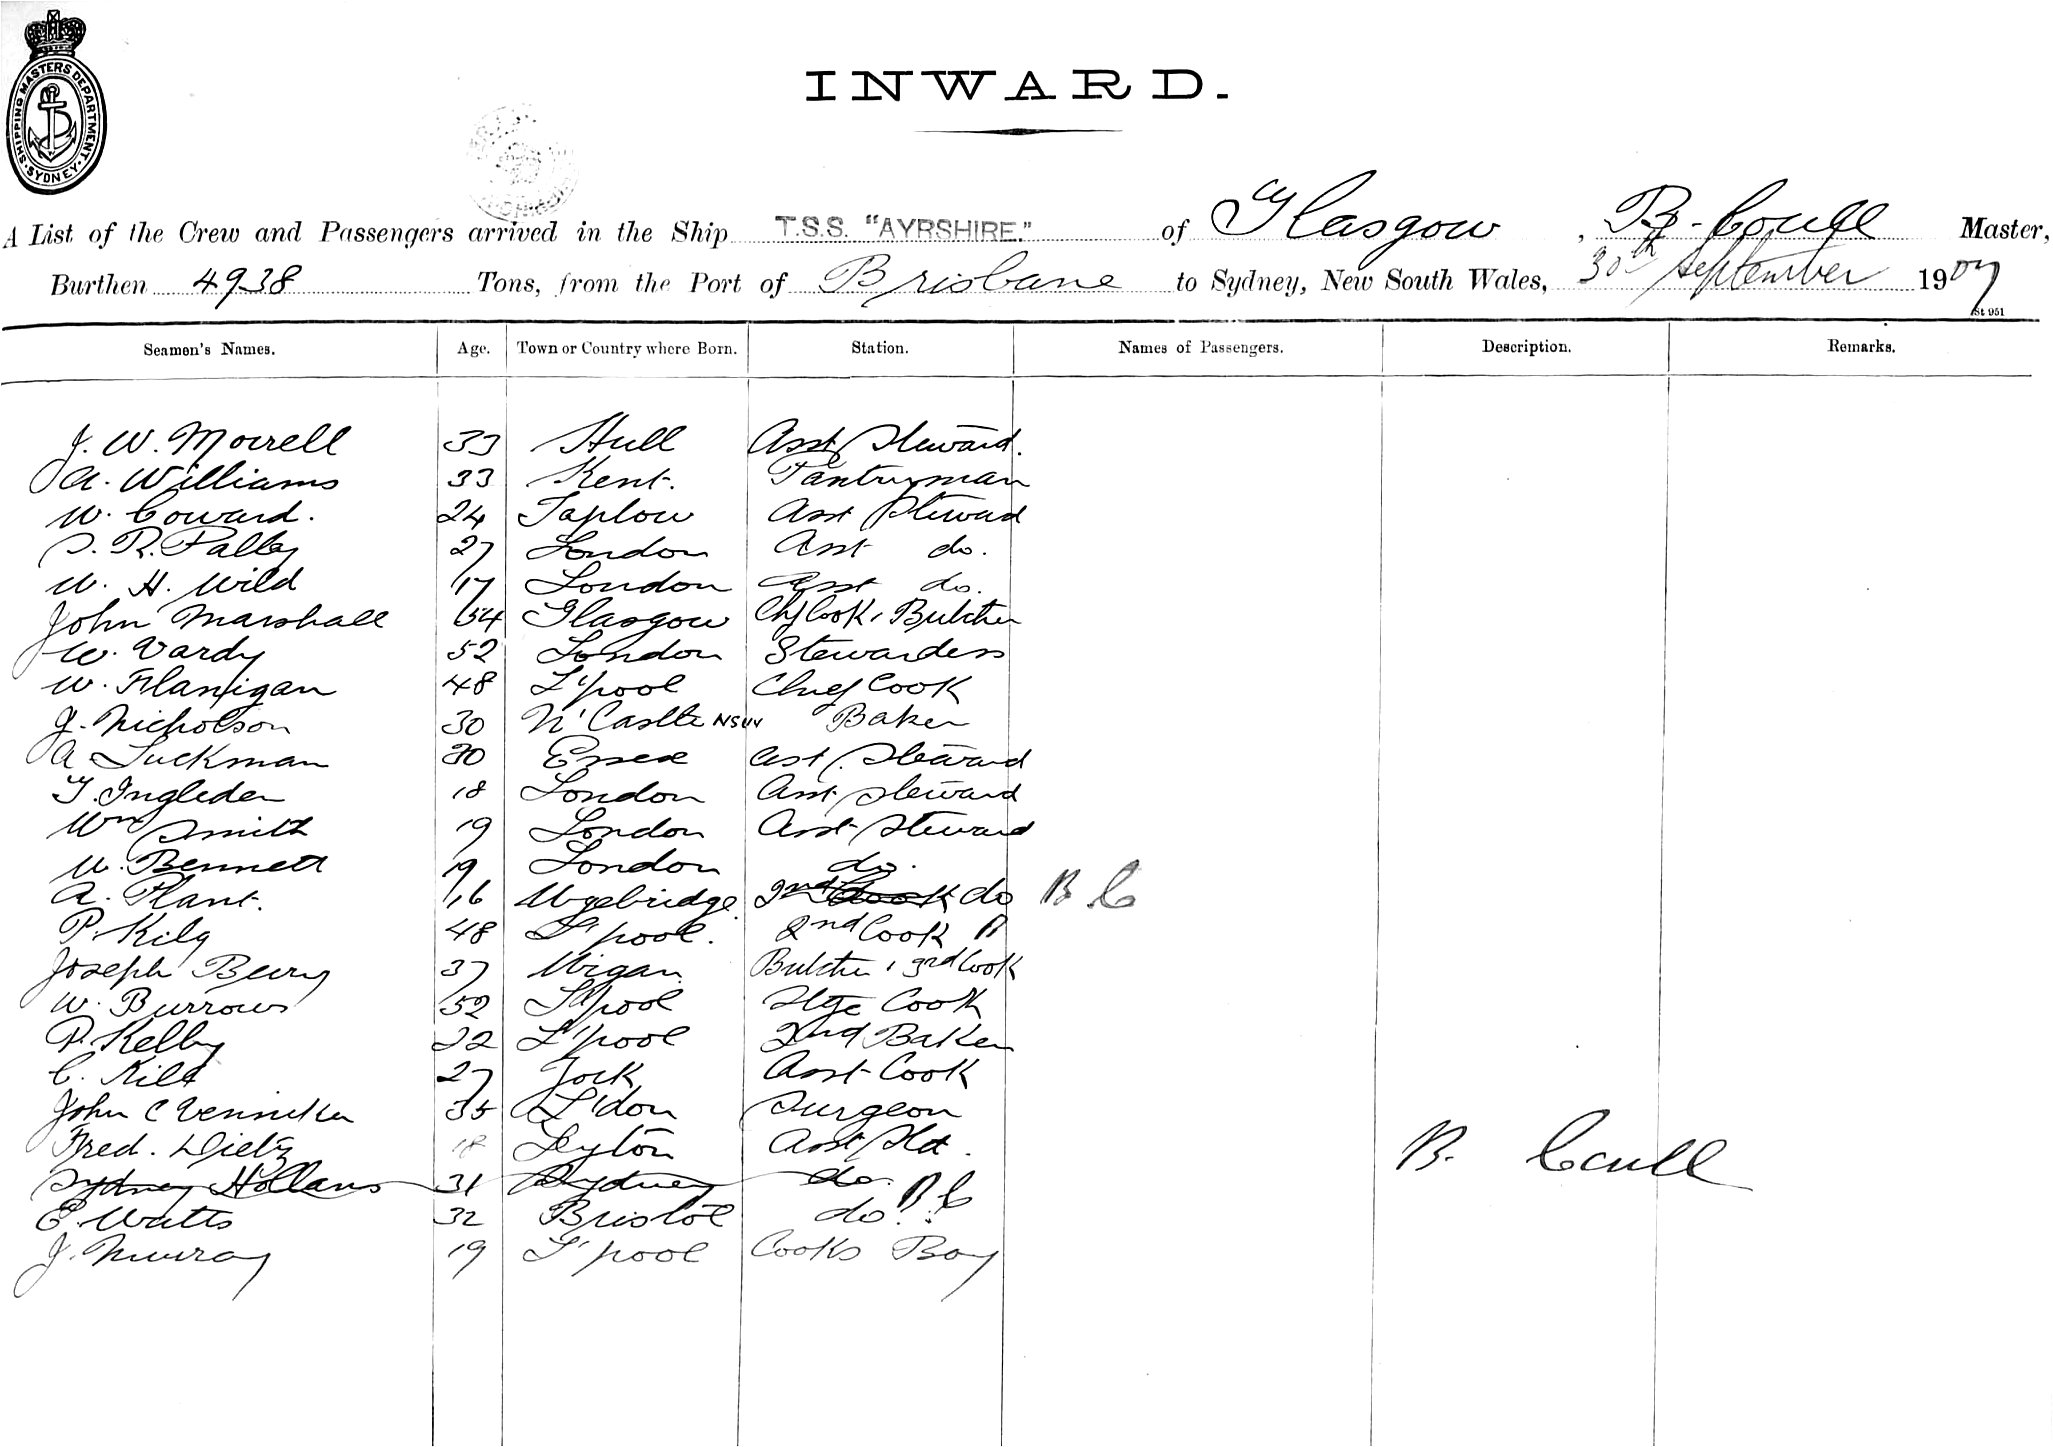 SHIPPING MASTERS DEPARTMENT. SYDNEY
INWARD.
A List of the Crew and Passengers arrived in the Ship T.S.S. "AYRSHIRE." of Glasgow, B. Coull Master,
Burthen 4938 Tons, from the Port of Brisbane to Sydney, New South Wales, 30th September 1907
St 951
Seamen's Names. Age. Town or Country where Born. Station. Names of Passengers. Description. Remarks.
J. W. Morrell 33 Hull Asst Steward.
A. Williams 33 Kent. Pantryman
W. Coward. 24 Taplow Asst Steward
S. R. Palby 27 London Asst do.
W. H. Wild 17 London Asst do.
John Marshall 54 Glasgow Chf Cook, Butcher
W. Vardy 52 London Stewardess
W. Flanigan 48 L'pool Chief Cook
J. Nicholson 30 N'Castle NSW Baker
A Luckman 20 Essex Asst. Steward
T. Ingleden 18 London Asst Steward
Wm Smith 19 London Asst Steward
W. Bennett 19 London do.
A. Plant. 16 2nd Cook do B C
P. 48 L'pool. 2nd Cook
Joseph Berry 37 Wigan Butcher, 3rd Cook
W. Burrows 52 L'pool Stge Cook
P. Kelly 22 L'pool 2nd Baker
C. Kilt 27 Asst Cook
John C Venniker 35 L'don Surgeon
Fred. Dietz 18 Leyton Asst Std.
Sydney Hollans 31 Sydney do. B C
B. Coull
E. Watts 32 Bristol do.
J. Murray 19 L'pool Cooks Boy